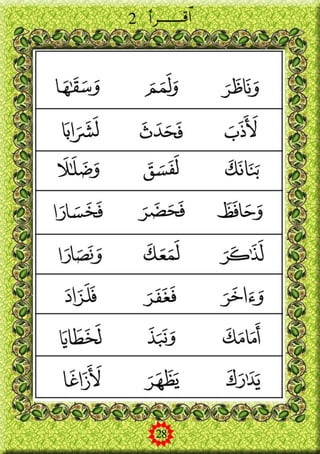 2 أقـــرأ
وَنَاظَرَ وَلَمَمَ وَسَقَهَا
لَأَذَبَ فَحَدَثَ لَشَرَابَا
بَنَانَكَ لَفَسَقَ وَضَلَلَا
وَحَافَظَ فَحَضَرَ فَخَسَارَا
لَذَكَرَ لَمَعَكَ وَنَصَارَا
وَءَاخَرَ فَغَفَرَ فَلَزَادَ
أَمَامَكَ وَنَبَذَ لَخَطَايَا
يَدَارَكَ يَظَهَرَ لَأَزَاغَا
28